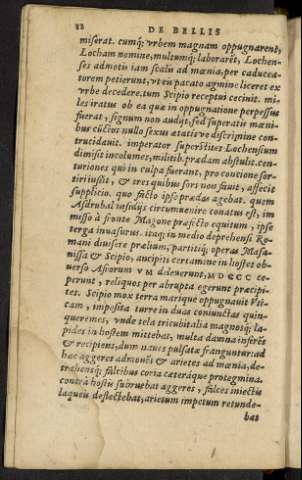 12 DE BELLIS
miserat. cumq́; vrbem magnam oppugnarent,
Locham nomine, multumq́; laborarēt, Lochen-
ses admotis iam scalis ad mœnia, per caducea-
torem petierunt, vt eū pacato agmine liceret ex
vrbe decedere, tum Scipio receptui cecinit. mi-
les iratus ob ea quæ in oppugnatione perpessus
fuerat, signum non audijt, sed superatis mœni-
bus cūctos nullo sexus ætatisve discrimine con-
trucidauit. imperator superstites Lochensium
dimisit incolumes, militib. prædam abstulit. cen-
turiones qui in culpa fuerant, pro concione sor-
tiri iussit, & tres quibus sors non fauit, affecit
supplicio. quo facto ipse prædas agebat. quem
Asdrubal insidijs circumuenire conatus est, im-
misso à fronte Magone præfecto equitum, ipse
terga inuasurus. itaq; in medio deprehensi Ro-
mani diuisere prælium, partitiq; operas Masa-
nissa & Scipio, ancipiti certamine in hostes ob-
uerso Afrorum VM deleuerunt, MDCCC ce-
perunt, reliquos per abrupta egerunt præcipi-
tes. Scipio mox terra marique oppugnauit Vti-
cam, imposita turre in duas coniunctas quin-
queremes, vnde tela tricubitalia magnosq́; la-
pides in hostem mittebat, multa damna inferēs
& recipiens, dum naues pulsatæ franguntur: ad
hæc aggeres admouēs & arietes ad mœnia, de-
trahensq́; falcibus coria cæteráque protegmina.
contrà hostis subruebat aggeres, falces iniectis
laqueis deflectebat, arietum impetum retunde-
bat